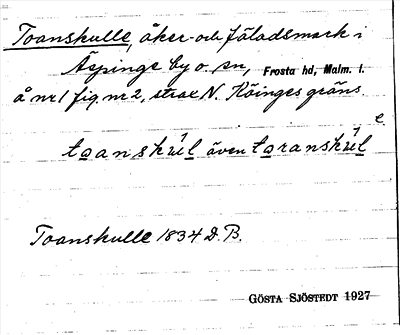 Toanskulle, åker- och fäladsmark i
Äspinge by o. sn, Frosta hd, Malm. l.
å nr 1 fig nr 2, strax N. Köinges gräns.
toanskul även toranskul
e
Toanskulle 1834 D. B.
GÖSTA SJÖSTEDT 1927